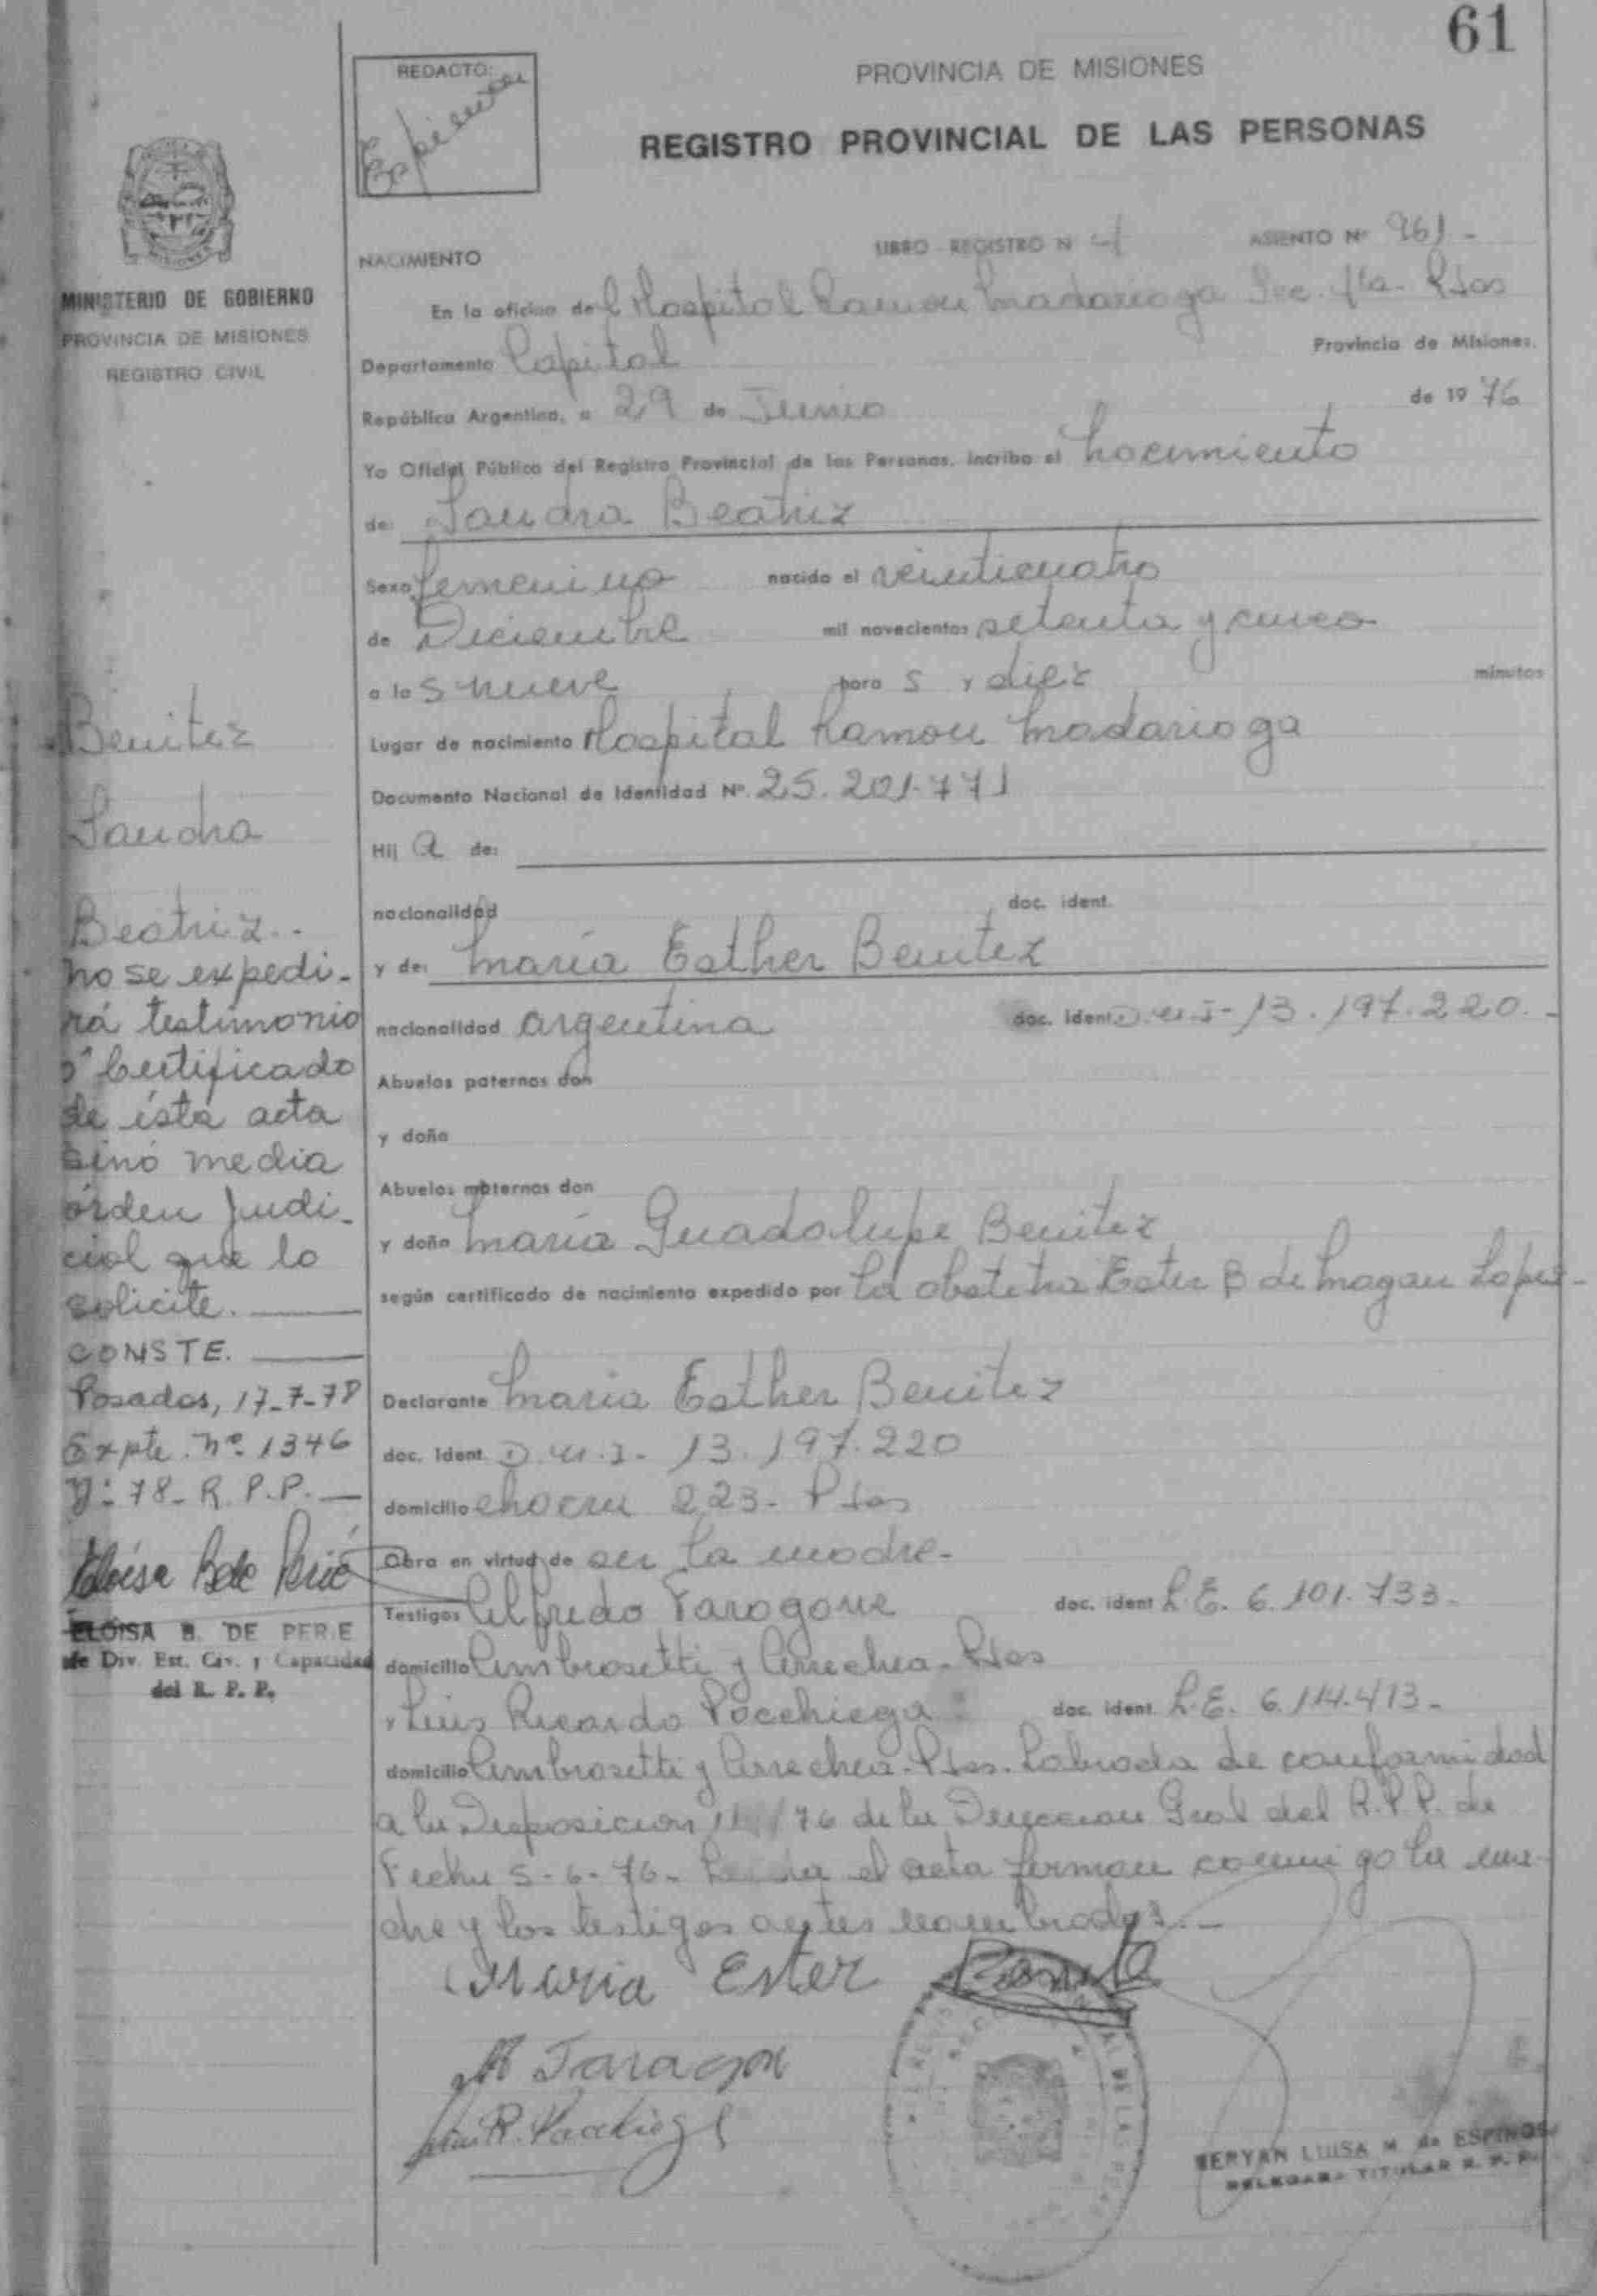 61
REDACTO:
PROVINCIA DE MISIONES
REGISTRO PROVINCIAL DE LAS PERSONAS
MINISTERIO DE GOBIERNO
PROVINCIA DE MISIONES
REGISTRO CIVIL
NACIMIENTO LIBRO REGISTRO N 4 ASIENTO Nº 961 -
En la oficina del Hospital Ramon Madariaga Sec. 4ta. Pdas
Departamento Capital Provincia de Misiones.
República Argentina, a 29 de Junio de 1976
Yo Oficial Público del Registro Provincial de las Personas, incribo el Nacimiento
de: Sandra Beatriz
Sexo femenino nacido el veinticuatro
de Diciembre mil novecientos setenta y cinco
a las nueve horas y diez minutos
Lugar de nacimiento Hospital Ramon Madariaga
Documento Nacional de Identidad Nº. 25.201.771
Hija de:
nacionalidad doc. ident.
y de: Maria Esther Benitez
nacionalidad argentina doc. ident. D.N.I- 13.197.220.-
Abuelos paternos don
y doña
Abuelos maternos don
y doña Maria Guadalupe Benitez
según certificado de nacimiento expedido por la obstetra Ester B de Magan Lopez-
Declarante Maria Esther Benitez
doc. ident. D.N.I- 13.197.220
domicilio 223- Pdas
Obra en virtud de ser la madre-
Testigos Alfredo Taragone doc. ident L.E. 6.101.733-
domicilio Ambrosetti y Arrechea- Pdas
y Luis Ricardo Pocchiega doc. ident. L.E. 6.114.413-
domicilio Ambrosetti y Arrechea- Pdas. Labrada de conformidad
a la Disposicion /76 de la Direccion Gral del R.P.P. de
Fecha 5-6-76- el acta firman conmigo la ma-
dre y los testigos antes nombrados.-
Maria Ester
A Taragon
Luis R. Pacchiega
MERYAN LUISA M. de ESPINOSA
DELEGADA TITULAR R. P. P.
Benitez
Sandra
Beatriz.-
No se expedi-
rá testimonio
ó Certificado
de ésta acta
sinó media
órden judi-
cial que lo
solicite.
CONSTE.
Posadas, 17-7-78
Expte. Nº 1346
78- R.P.P.
Eloisa B de Perié
ELOISA B. DE PERIE
fe Div. Est. Civ. y Capacidad
del R. P. P.